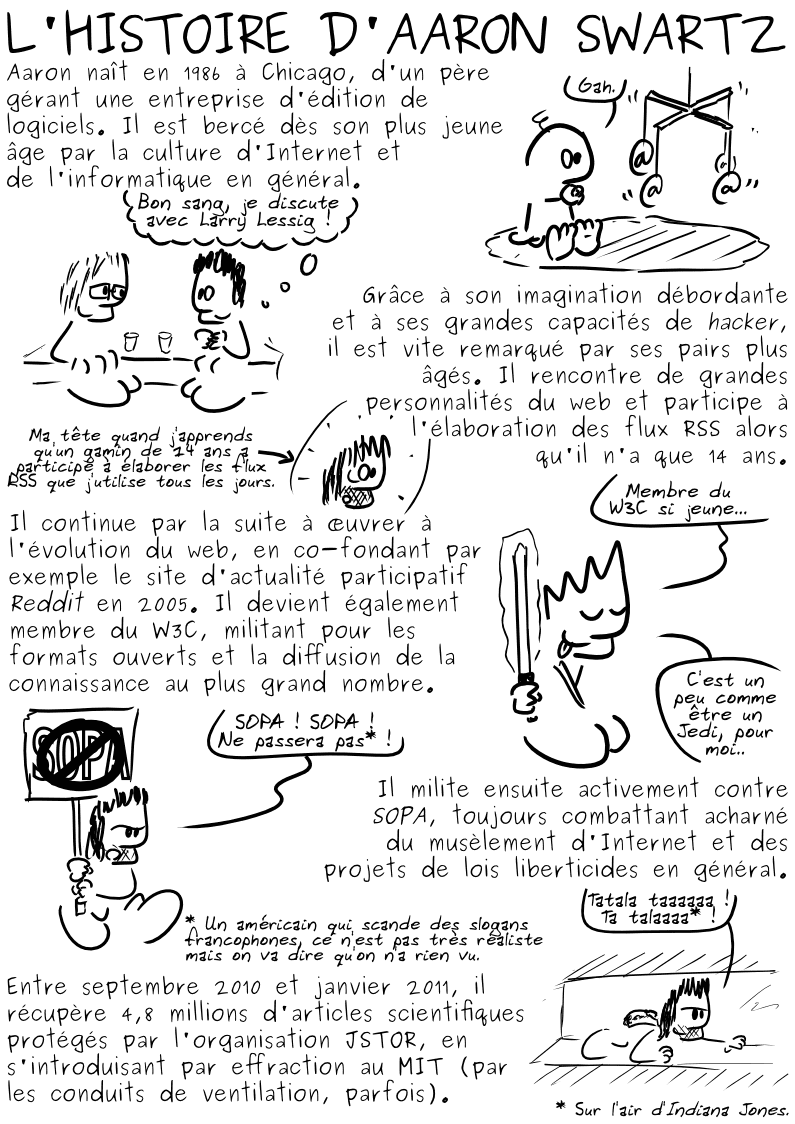 L'HISTOIRE D'AARON SWARTZ
Aaron naît en 1986 à Chicago, d'un père
gérant une entreprise d'édition de
logiciels. Il est bercé dès son plus jeune
âge par la culture d'Internet et
de l'informatique en général.
Gah.
@
@
@
@
Bon sang, je discute
avec Larry Lessig !
Grâce à son imagination débordante
et à ses grandes capacités de hacker,
il est vite remarqué par ses pairs plus
âgés. Il rencontre de grandes
personnalités du web et participe à
l'élaboration des flux RSS alors
qu'il n'a que 14 ans.
Ma tête quand j'apprends
qu'un gamin de 14 ans a
participé à élaborer les flux
RSS que j'utilise tous les jours.
Il continue par la suite à œuvrer à
l'évolution du web, en co-fondant par
exemple le site d'actualité participatif
Reddit en 2005. Il devient également
membre du W3C, militant pour les
formats ouverts et la diffusion de la
connaissance au plus grand nombre.
Membre du
W3C si jeune...
C'est un
peu comme
être un
Jedi, pour
moi..
SOPA
SOPA ! SOPA !
Ne passera pas* !
Il milite ensuite activement contre
SOPA, toujours combattant acharné
du musèlement d'Internet et des
projets de lois liberticides en général.
* Un américain qui scande des slogans
francophones, ce n'est pas très réaliste
mais on va dire qu'on n'a rien vu.
Tatala taaaaaa !
Ta talaaaa* !
Entre septembre 2010 et janvier 2011, il
récupère 4,8 millions d'articles scientifiques
protégés par l'organisation JSTOR, en
s'introduisant par effraction au MIT (par
les conduits de ventilation, parfois).
* Sur l'air d'Indiana Jones.